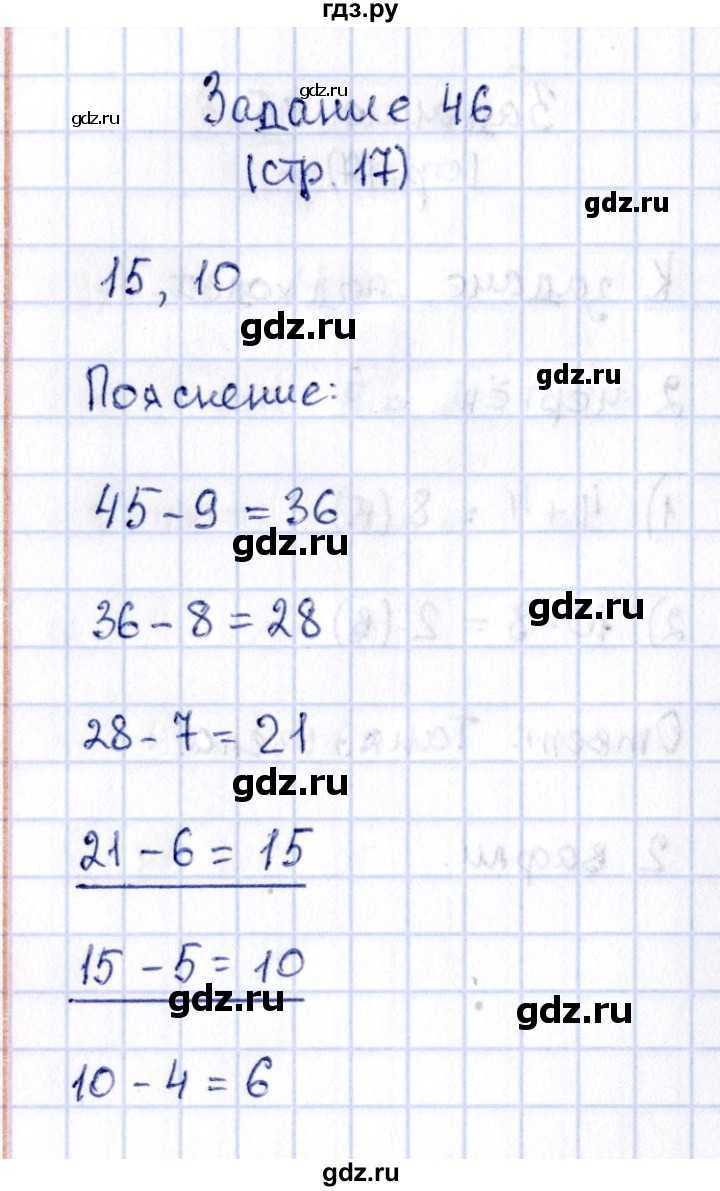 гдз.ру
gdz.ru
gdz.ru
Задание 46
(стр. 17)
gdz.ru
15, 10
gdz.ru
gdz.ru
Пояснение:
45 - 9 = 36
gdz.ru
gdz.ru
36 - 8 = 28
28 - 7 = 21
gdz.ru
21 - 6 = 15
15 - 5 = 10
gdz.ru
gdz.ru
10 - 4 = 6
gdz.ru